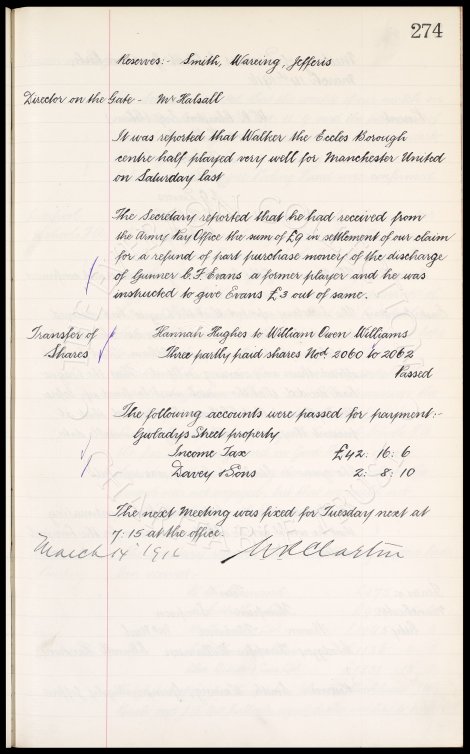 274
Reserves:- Smith, Wareing, Jefferis
Director on the Gate - Mr Halsall
It was reported that Walker the Eccles Borough
centre half played very well for Manchester United
on Saturday last
The Secretary reported that he had received from
the Army Pay Office the sum of £9 in settlement of our claim
for a refund of part purchase money of the discharge
of Gunner C. F. Evans a former player and he was
instructed to give Evans £3 out of same.
Transfer of Shares
Hannah Hughes to William Owen Williams
Three partly paid shares Nos. 2060 to 2062
Passed
The following accounts were passed for payment:-
Gwladys Street property
Income Tax £42: 16: 6
Davey & Sons 2: 8: 10
The next Meeting was fixed for Tuesday next at
7:15 at the office.
March 14 1916